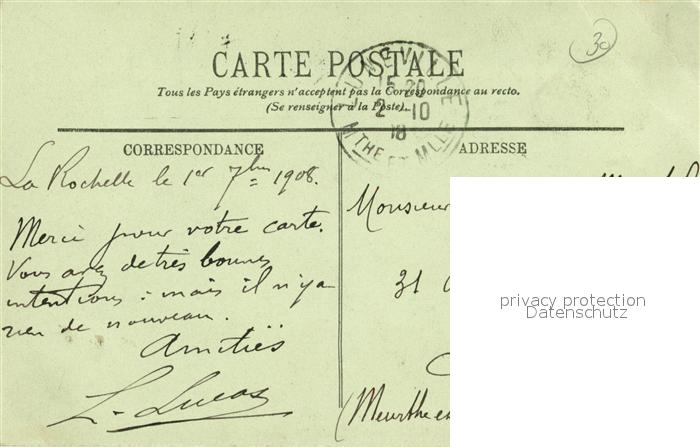 30
CARTE POSTALE
Tous les Pays étrangers n'acceptent pas la Correspondance au recto.
(Se renseigner à la Poste).
LUNEVILLE
15 25
2 - 10
MTHE ET MLLE
CORRESPONDANCE
ADRESSE
La Rochelle le 1er 7bre 1908.
Merci pour votre carte.
Vous avez de très bonnes
intentions : mais il n'y a
rien de nouveau.
Amitiés
L. Lucas
Monsieur
31
(Meurthe et
privacy protection
Datenschutz